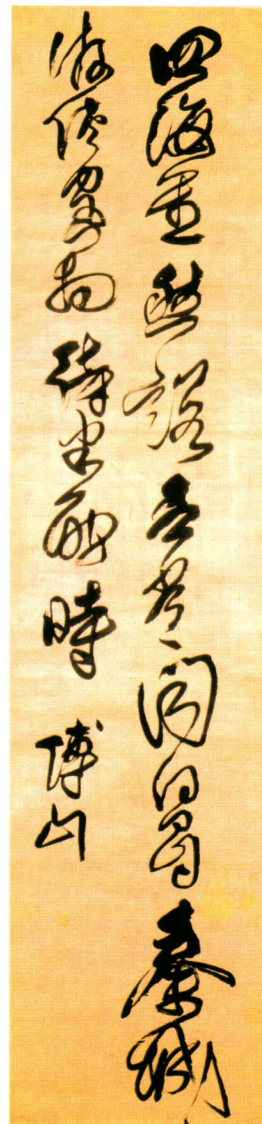 四海重然諾吾嘗聞白眉秦城
游俠客相得半酣時 傅山